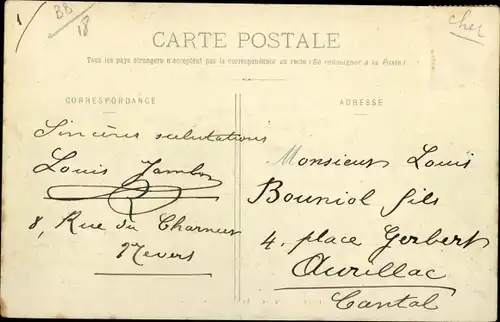 1
BB
18
cher
CARTE POSTALE
Tous les pays étrangers n'acceptent pas la correspondance au recto (Se renseigner à la Poste)
CORRESPONDANCE
Sincères salutations
Louis Jambon
8, Rue du Charnier
Nevers
ADRESSE
Monsieur Louis
Bouniol fils
4, place Gerbert
Aurillac
Cantal